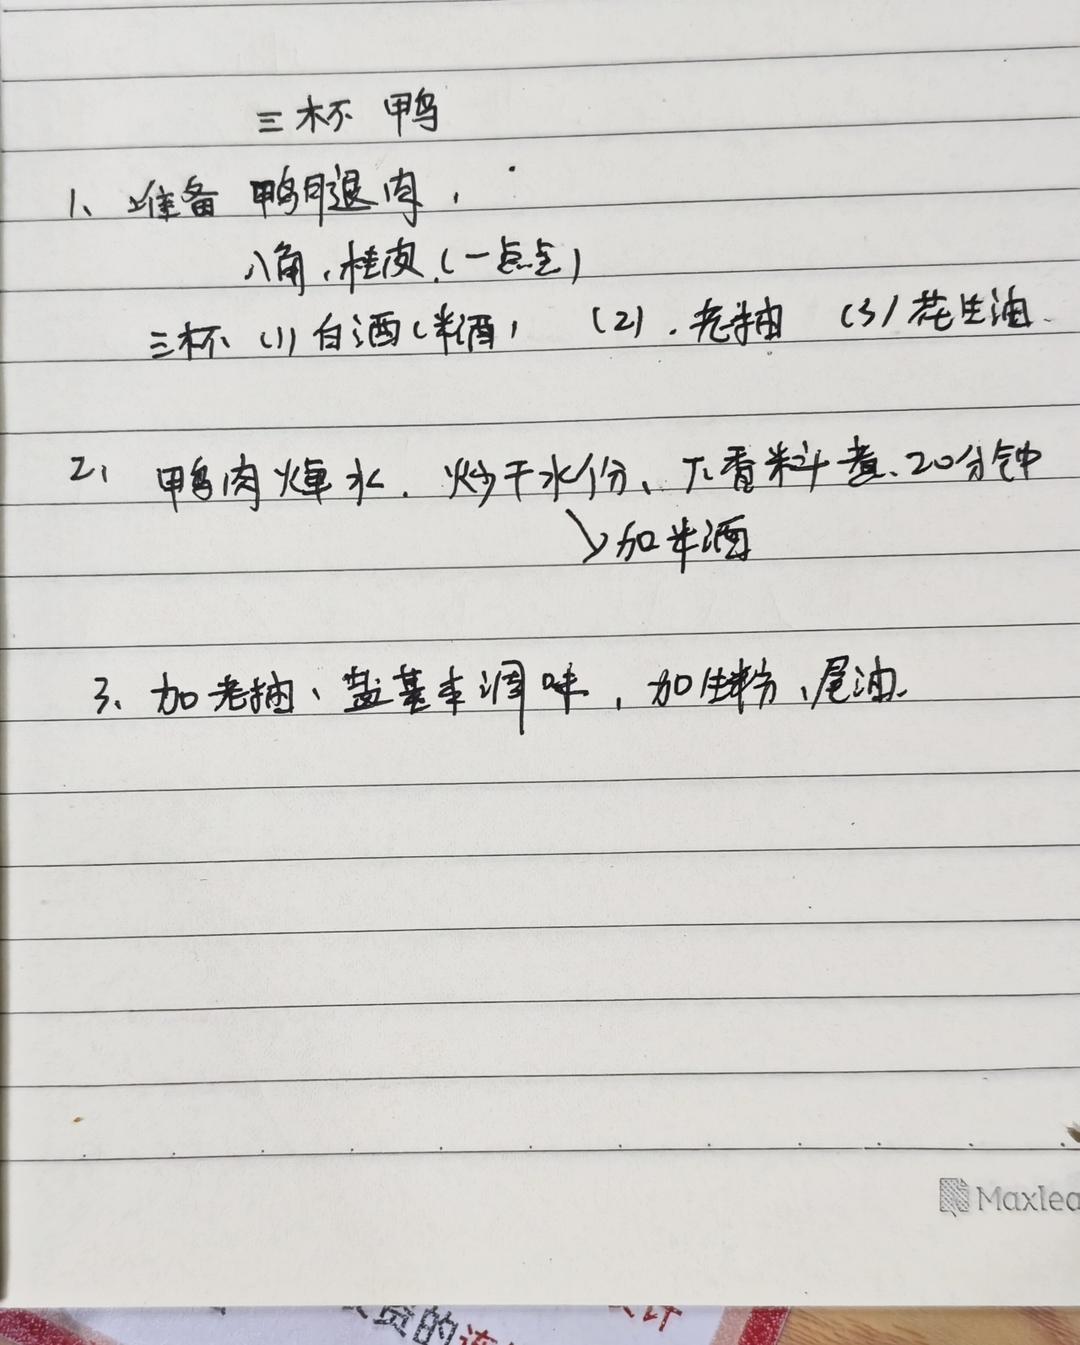 三杯鸭
1、准备 鸭腿肉，
八角，桂皮（一点点）
三杯 (1) 白酒（米酒） (2)．老抽 (3) 花生油．
2、鸭肉焯水．炒干水份、下香料煮．20分钟
↘加米酒
3、加老抽、盐基本调味，加生粉、尾油．
Maxlea
的